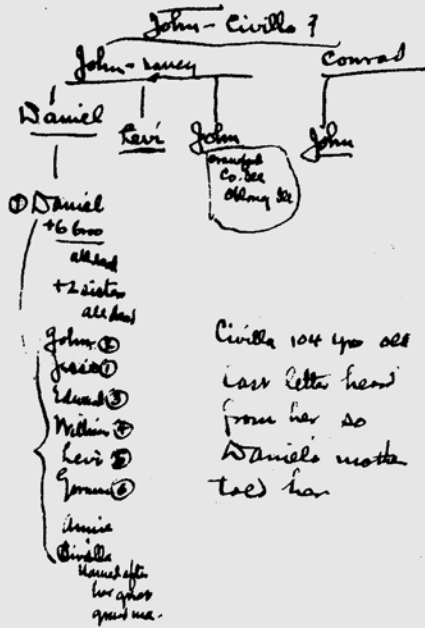 John - Civilla ?
John - Nancy
Conrad
Daniel
Levi
John
John
Crawford
Co. Ill
Oblong Ill
① Daniel
+6 bros
all dead
+2 sisters
all dead
John ②
①
Edward ③
William ④
Levi ⑤
⑥
Annie
Civilla
Named after
her great
grand ma.
Civilla 104 yrs old
Last letter heard
from her so
Daniel's mother
told her